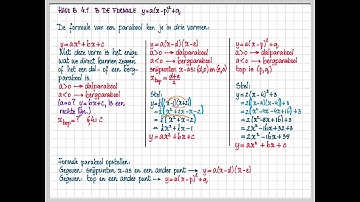 HAVO B 4.1 B DE FORMULE y=a(x-p)²+q
De formule van een parabool ken je in drie vormen:
y=ax²+bx+c
Met deze vorm is het enige
wat we direct kunnen zeggen
of het een dal- of een berg-
parabool is.
a>0 → dalparabool
a<0 → bergparabool
(a=0? y=bx+c, is een
rechte lijn.)
x_top=?
y=a(x-d)(x-e)
a>0 → dalparabool
a<0 → bergparabool
snijpunten x-as: (d,0) en (e,0)
x_top = (d+e)/2
Stel:
y=½(x-1)(x+2)
=½(x²+2x-x-2)
=½(x²+x-2)
=½x²+½x-1
y=ax²+bx+c
y=a(x-p)²+q
a>0 → dalparabool
a<0 → bergparabool
top is (p,q)
Stel:
y=2(x-4)²+3
=2(x-4)(x-4)+3
=2(x²-8x+16)+3
=2x²-16x+32+3
=2x²-16x+35
y=ax²+bx+c
Formule parabool opstellen:
Gegeven: snijpunten x-as en een ander punt → y=a(x-d)(x-e)
Gegeven: top en een ander punt → y=a(x-p)²+q